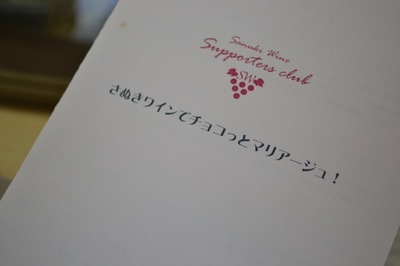 Sanuki Wine
Supporters club
SW
さぬきワインでチョコっとマリアージュ！